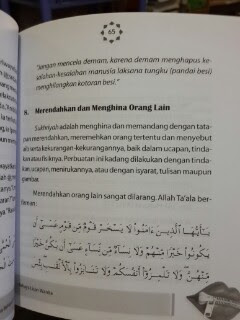 65
"Jangan mencela demam, karena demam menghapus ke-
salahan-kesalahan manusia laksana tungku (pandai besi)
menghilangkan kotoran besi."
8. Merendahkan dan Menghina Orang Lain
Sukhriyah adalah menghina dan memandang dengan tata-
pan merendahkan, meremehkan orang tertentu dan menyebut
aib serta kekurangan-kekurangannya, baik dalam ucapan, tin-
dakan atau fisiknya. Perbuatan ini kadang dilakukan dengan tin-
dakan, ucapan, menirukannya, atau dengan isyarat, tulisan maupun
gambar.
Merendahkan orang lain sangat dilarang. Allah Ta'ala ber-
firman:
يَٰٓأَيُّهَا ٱلَّذِينَ ءَامَنُوا۟ لَا يَسْخَرْ قَوْمٌ مِّن قَوْمٍ عَسَىٰٓ أَن
يَكُونُوا۟ خَيْرًا مِّنْهُمْ وَلَا نِسَآءٌ مِّن نِّسَآءٍ عَسَىٰٓ أَن يَكُنَّ خَيْرًا
مِّنْهُنَّ ۖ وَلَا تَلْمِزُوٓا۟ أَنفُسَكُمْ وَلَا تَنَابَزُوا۟ بِٱلْأَلْقَٰبِ ۖ